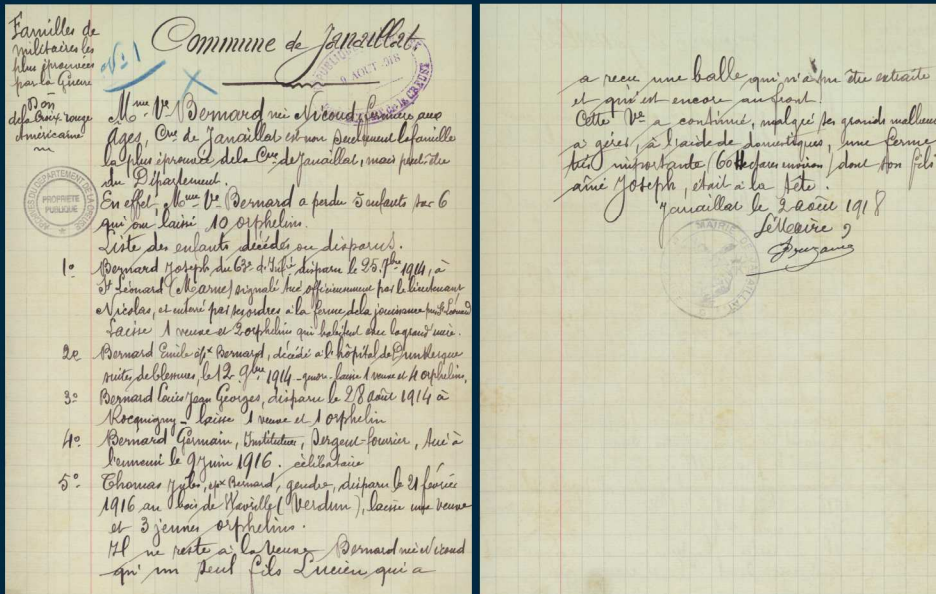 Familles de
militaires les
plus éprouvées
par la Guerre
Don
de la Croix rouge
Américaine
N° 1
Commune de Janaillat
9 AOUT 1918
Mme Vve Bernard née Nicoud, fermière aux
Ages, Cne de Janaillat est non seulement la famille
la plus éprouvée de la Cne de Janaillat, mais peut-être
du Département.
ARCHIVES DU DÉPARTEMENT DE LA CREUSE
PROPRIÉTÉ
PUBLIQUE
En effet Mme Vve Bernard a perdu 5 enfants sur 6
qui ont laissé 10 orphelins.
Liste des enfants décédés ou disparus.
1° Bernard Joseph, du 63e d'Infie, disparu le 25 7bre 1914, à
St Léonard (Marne) signalé tué officieusement par le lieutenant
Nicolas, et enterré par ses ordres à la ferme de la jouissance
Laisse 1 veuve et 2 orphelins qui habitent avec la grand'mère.
2e Bernard Emile Bernard, décédé à l'hôpital de Dunkerque
suites de blessures, le 12 9bre 1914 - laisse 1 veuve et 4 orphelins.
3° Bernard Louis Jean Georges, disparu le 28 août 1914 à
Rocquigny - laisse 1 veuve et 1 orphelin
4° Bernard Germain, Instituteur, Sergent-fourrier, tué à
l'ennemi le 9 juin 1916. célibataire
5° Thomas Jules, épx Bernard, gendre, disparu le 21 février
1916 au bois de Wavrille (Verdun), laisse une veuve
et 3 jeunes orphelins.
Il ne reste à la veuve Bernard née Nicoud
qu'un seul fils Lucien qui a
a reçu une balle qui n'a pu être extraite
et qui est encore au front.
Cette Vve a continué, malgré ses grands malheurs
à gérer, à l'aide de domestiques, une ferme
très importante (60 Hectares environ) dont son fils
aîné Joseph, était à la tête.
Janaillat le 2 août 1918
Le Maire
MAIRIE DE JANAILLAT